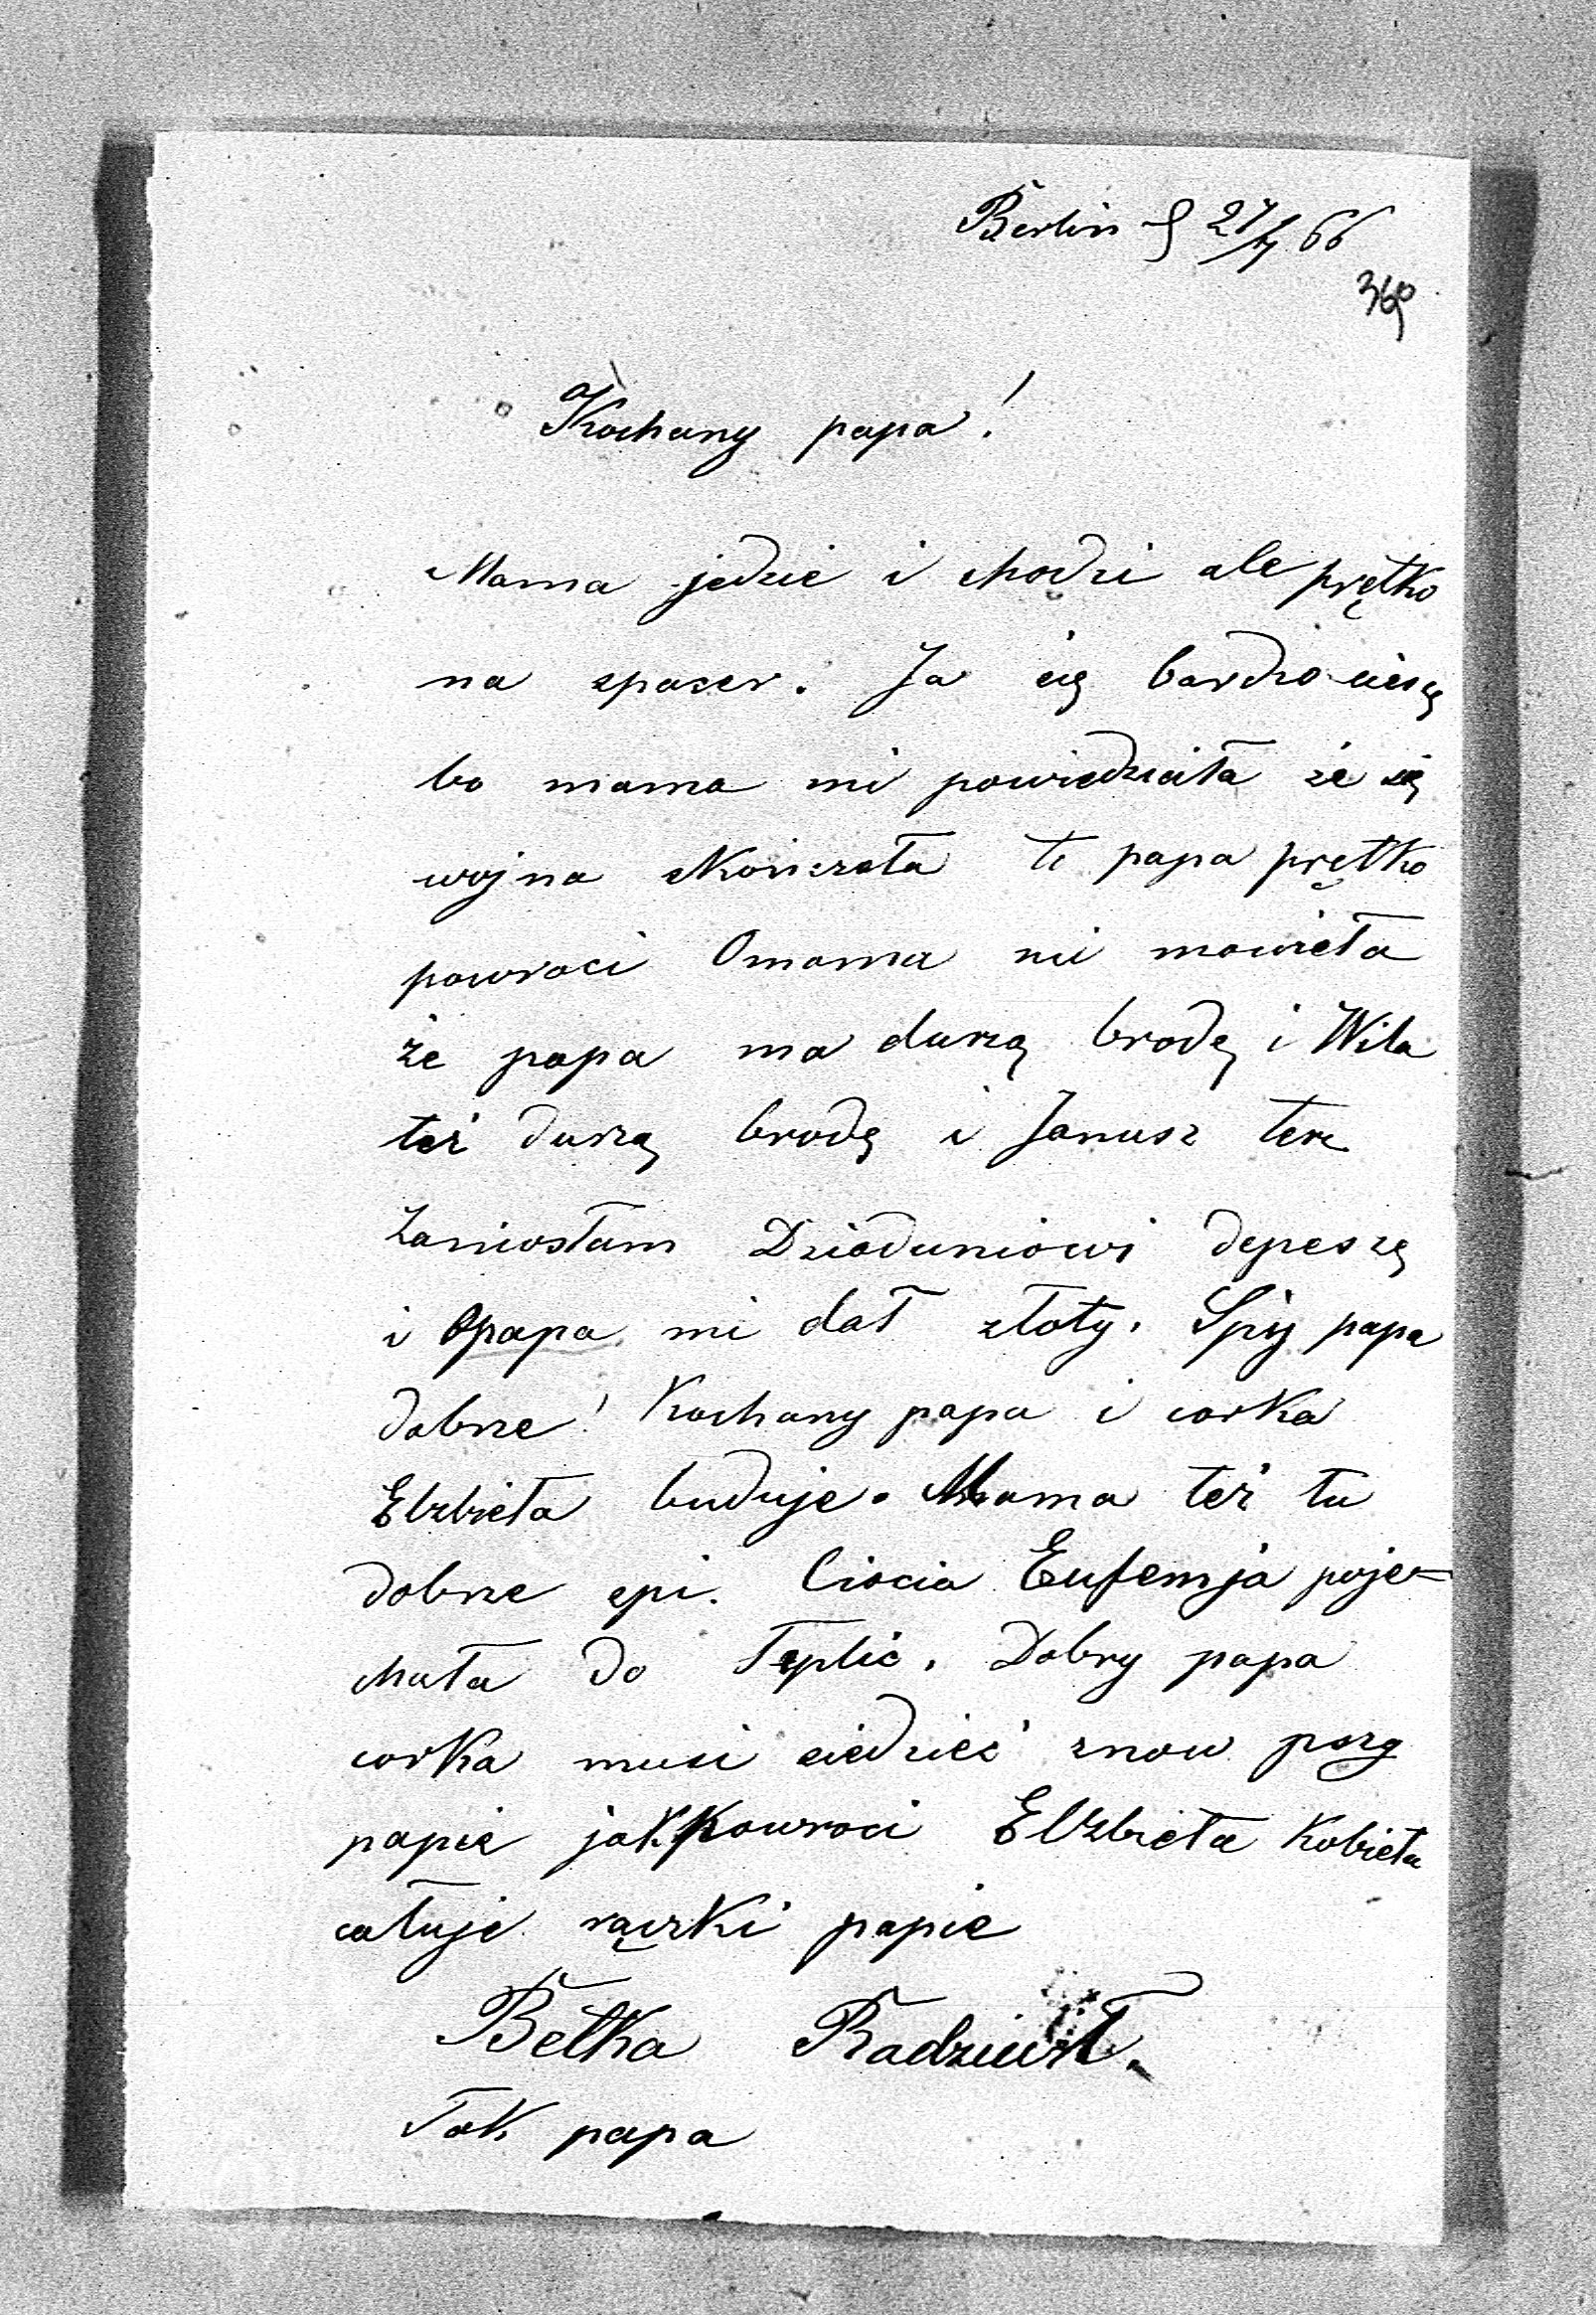 Berlin d 27/7 66
369
Kochany papa!
Mama jedzie i chodzi ale prętko
na spacer. Ja się bardzo cieszę
bo mama mi powiedziała że się
wojna skończała to papa prętko
powroci Omama mi mowieła
że papa ma durzą brodę i Wila
też durzą brodę i Janusz terz
Zaniosłam Dziaduniowi depeszę
i Opapa mi dał złoty. Spij papa
dobrze! Kochany papa i corka
Elzbieta buduje. Mama też tu
dobrze spi. Ciocia Eufemja poje=
chała do Teplic. Dobry papa
corka musi siedzieć znow przy
papie jak powroci Elzbieta Kobieta
całuje rączki papie
Betka Radziwił.
Tak papa